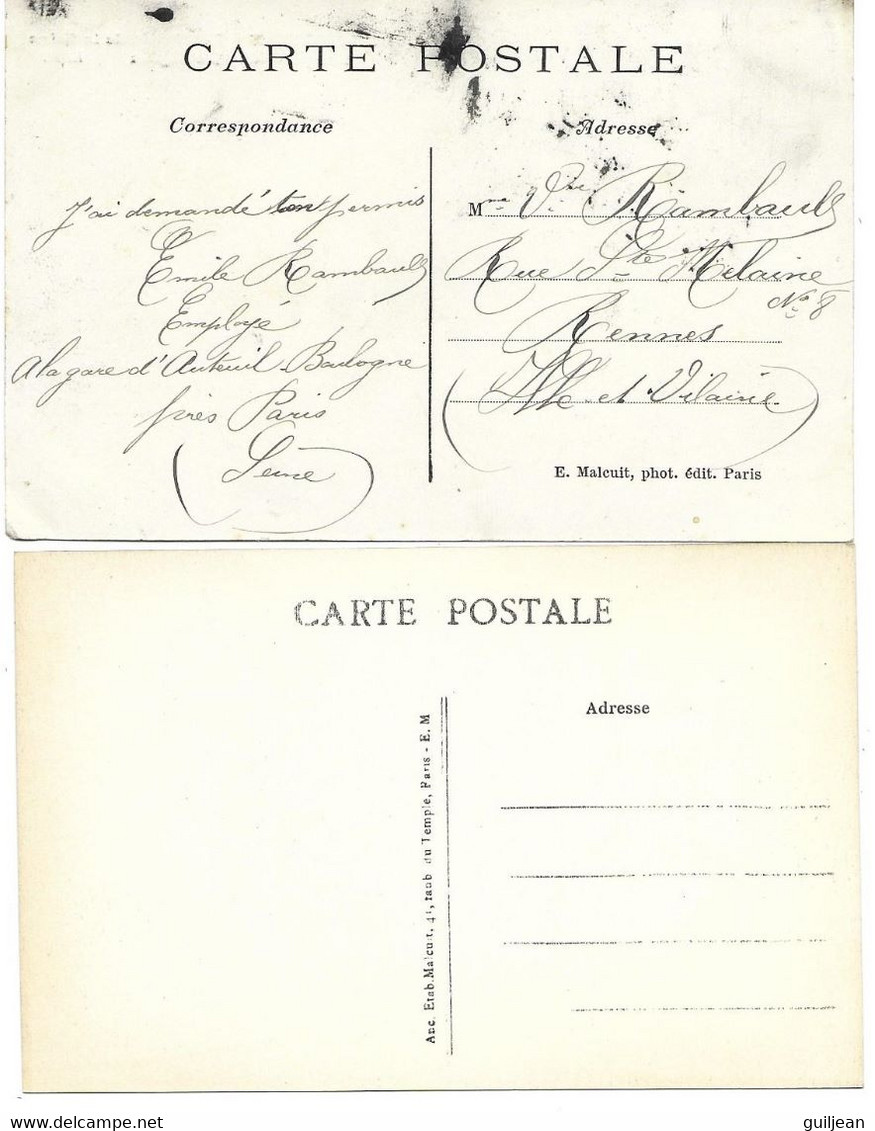 CARTE POSTALE
Correspondance
J'ai demandé ton permis
Emile Rambault
Employé
a la gare d'Auteuil-Boulogne
près Paris
(Seine)
Adresse
Mme Vve Rambault
Rue Ste Melaine
No 8
Rennes
(Ille et Vilaine)
E. Malcuit, phot. édit. Paris
CARTE POSTALE
Anc. Etab. Malcuit. 41, faub du Temple, Paris - E. M
Adresse
guiljean